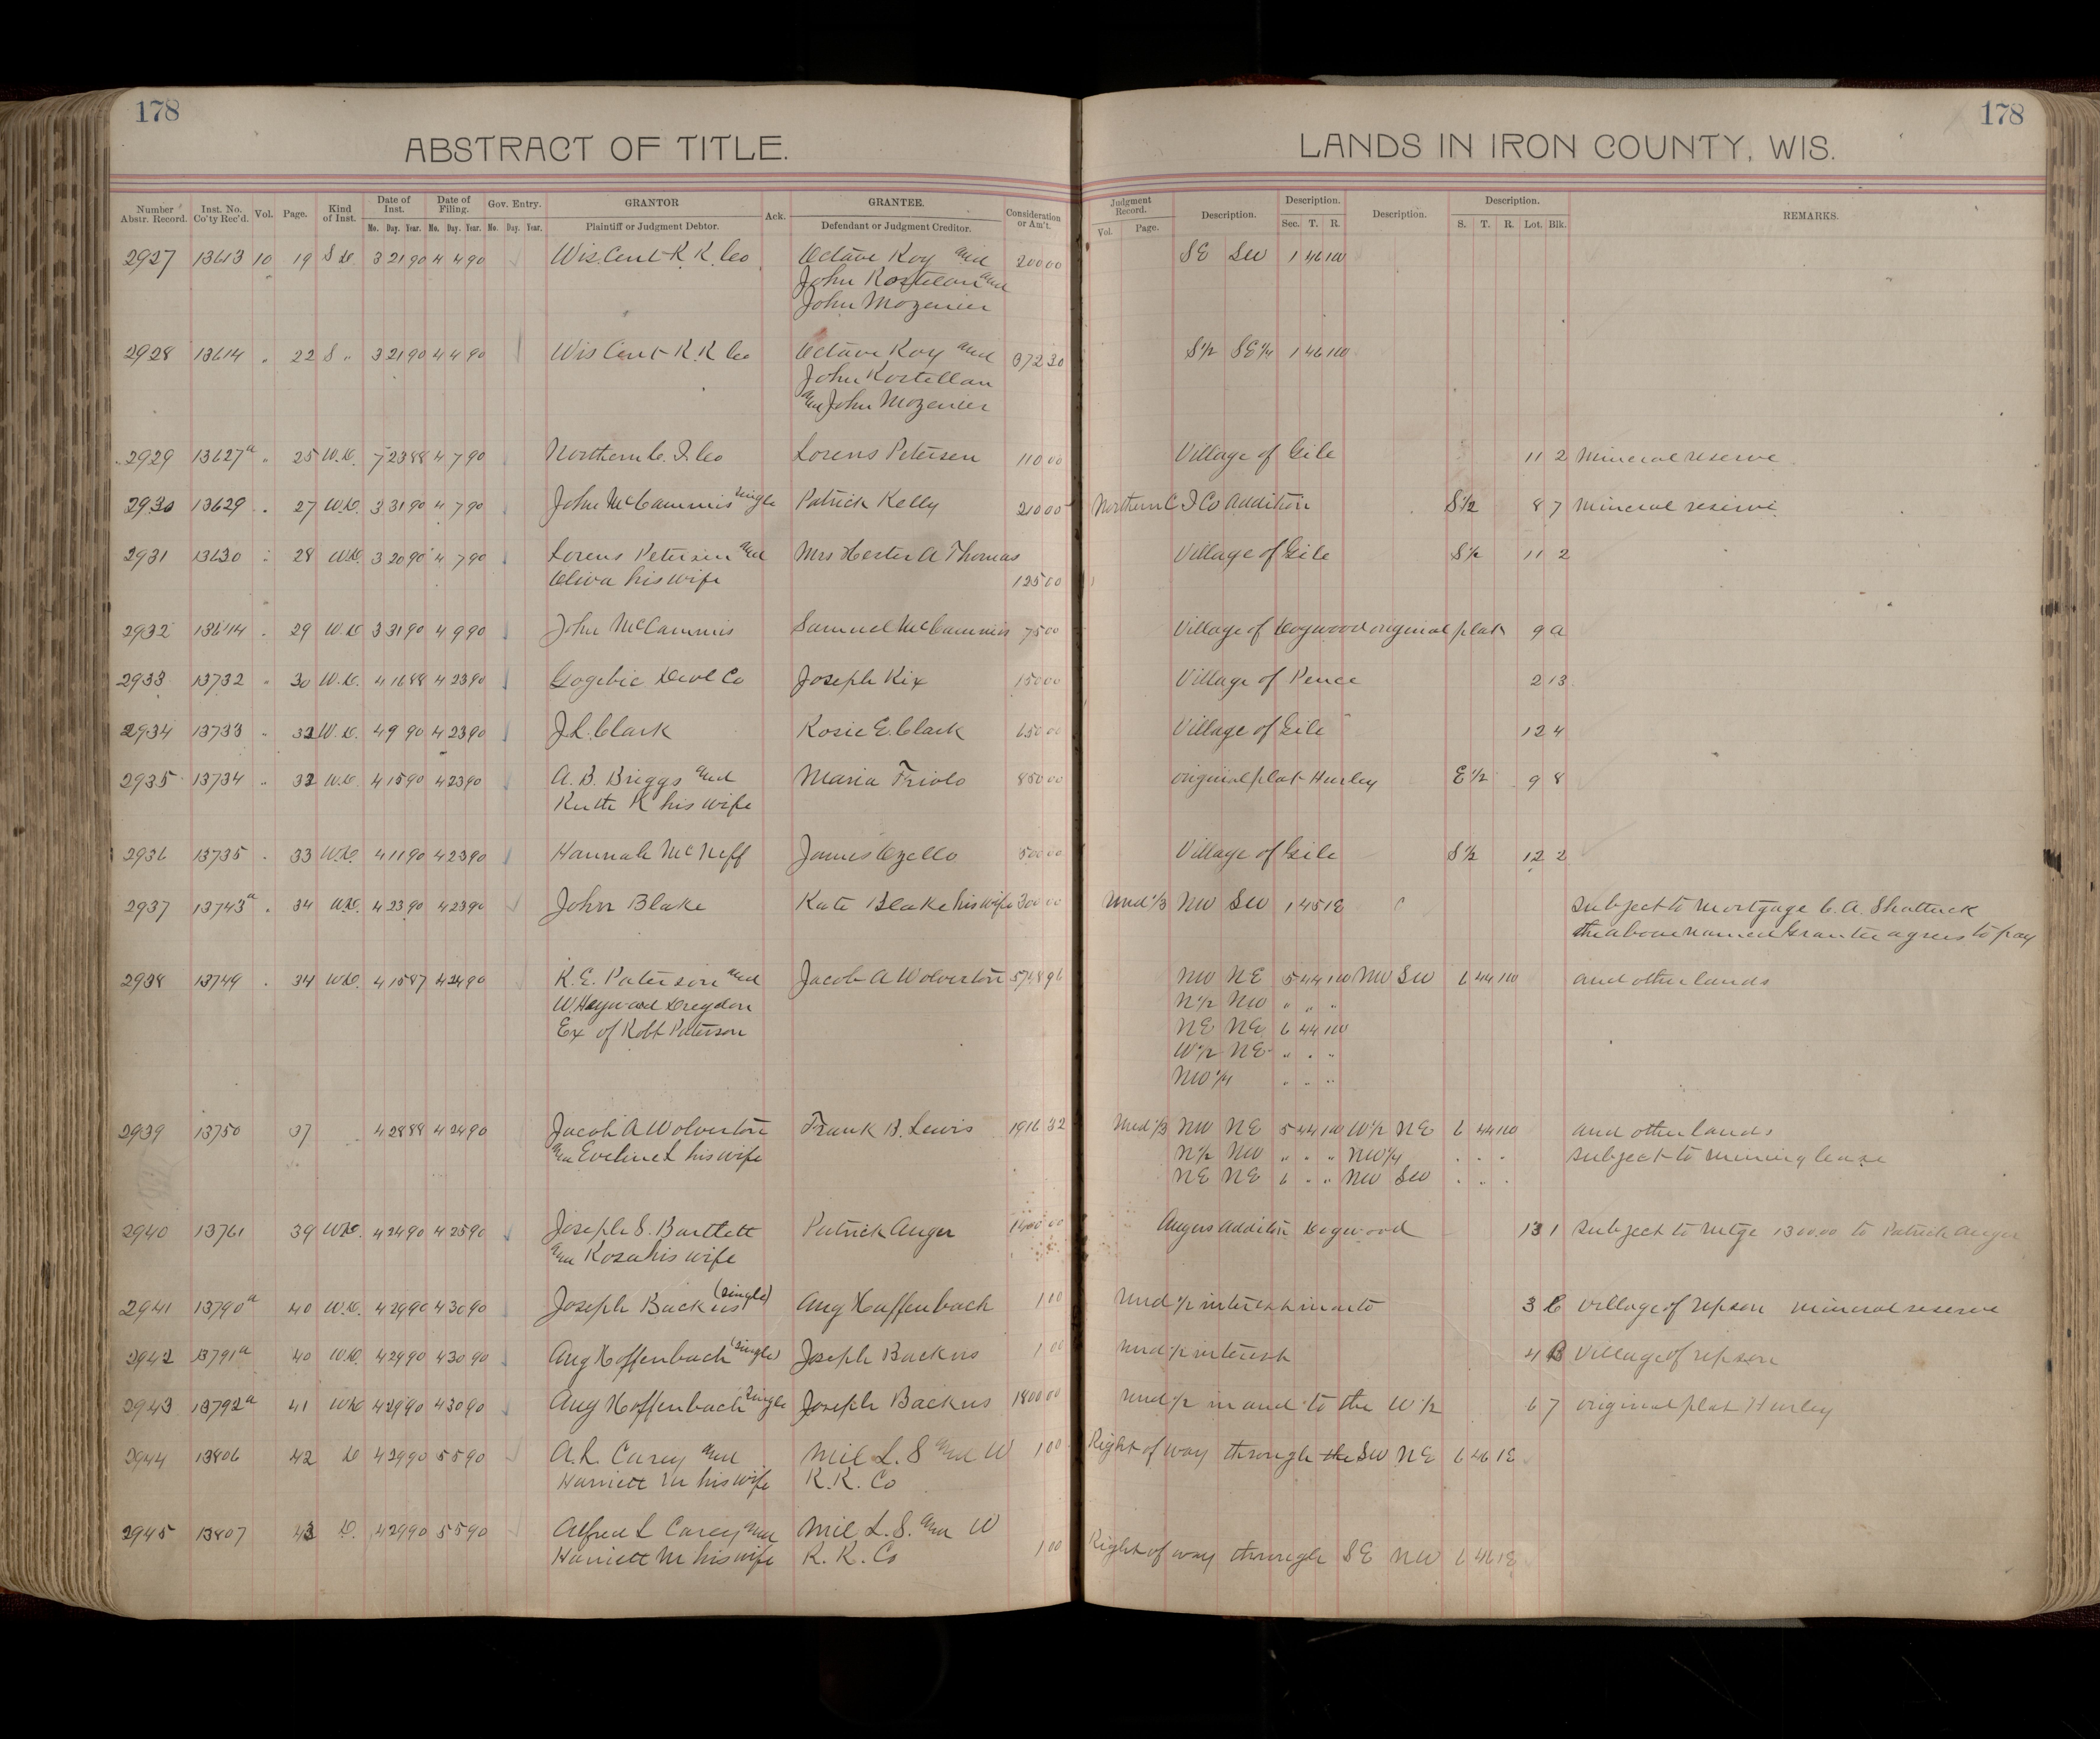 178
178
ABSTRACT OF TITLE.
LANDS IN IRON COUNTY, WIS.
Number Abstr. Record. Inst. No. Co'ty Rec'd. Vol. Page. Kind of Inst. Date of Inst. Date of Filing. Gov. Entry. GRANTOR Ack. GRANTEE. Consideration or Am't. Judgment Record. Description. Description. Description. Description. REMARKS.
Mo. Day. Year. Mo. Day. Year. Mo. Day. Year. Plaintiff or Judgment Debtor. Defendant or Judgment Creditor. Vol. Page. Sec. T. R. S. T. R. Lot. Blk.
2927 13613 10 19 S D. 3 21 90 4 4 90 Wis. Cent R. R. Co Octave Roy and 200 00 SE SW 1 46 1W
John Kostelan and
John Mozenier
2928 13614 " 22 S " 3 21 90 4 4 90 Wis Cent R. R Co Octave Roy and 372 30 S1/2 SE1/4 1 46 1W
John Kostellan
and John Mozenier
2929 13627a " 25 W.D. 7 23 88 4 7 90 Northern C. I. Co Lorens Petersen 110 00 Village of Gile 11 2 Mineral reserve
2930 13629 " 27 W.D. 3 31 90 4 7 90 John McCammis single Patrick Kelly 210 00 Northern C I Co addition S1/2 8 7 Mineral reserve
2931 13630 " 28 W.D. 3 20 90 4 7 90 Lorens Petersen and Mrs Hester A Thomas Village of Gile S1/2 11 2
Oliva his wife 125 00
2932 13644 " 29 W.D 3 31 90 4 9 90 John McCammis Samuel McCammis 75 00 Village of Dogwood original plat 9 A
2933 13732 " 30 W.D. 4 16 88 4 23 90 Gogebic Devl Co Joseph Rix 150 00 Village of Pence 2 13
2934 13733 " 32 W.D. 4 9 90 4 23 90 J. L. Clark Rosie E. Clark 650 00 Village of Gile 12 4
2935 13734 " 32 W.D. 4 15 90 4 23 90 A. B. Briggs and Maria Triolo 850 00 original plat Hurley E1/2 9 8
Ruth R his wife
2936 13735 " 33 W.D. 4 11 90 4 23 90 Hannah McNeff 500 00 Village of Gile S1/2 12 2
2937 13743a " 34 W.D. 4 23 90 4 23 90 John Blake Kate Blake his wife 300 00 Und 1/3 NW SW 1 45 1E subject to mortgage C. A. Shattuck
the above named Grantee agrees to pay
2938 13749 " 34 W.D. 4 15 87 4 24 90 R. E. Paterson and Jacob A Wolverton 5748 96 NW NE 5 44 1W NW SW 6 44 1W and other lands
W. Heywood N1/2 NW " " "
Ex of Robt Paterson NE NE 6 44 1W
W1/2 NE " " "
NW1/4 " " "
2939 13750 37 4 28 88 4 24 90 Jacob A Wolverton Frank B. Lewis 1916 32 Und 1/3 NW NE 5 44 1W W1/2 NE 6 44 1W and other lands
and Eveline L his wife N1/2 NW " " " NW1/4 " " " subject to mining lease
NE NE 6 " " NW SW " " "
2940 13761 39 W.D. 4 24 90 4 25 90 Joseph S. Bartlett Patrick Auger Augers addition Dogwood 13 1 subject to Mtge 1300.00 to Patrick Auger
and Rosa his wife
2941 13790a 40 W.D. 4 29 90 4 30 90 Joseph Backus (single) Aug Hoffenbach 1 00 Und 1/2 interest in and to 3 C village of Upson mineral reserve
2942 13791a 40 W.D. 4 29 90 4 30 90 Aug Hoffenbach (single) Joseph Backus 1 00 Und 1/2 interest 4 B Village of Upson
2943 13792a 41 W.D 4 29 90 4 30 90 Aug Hoffenbach single Joseph Backus 1800 00 Und 1/2 in and to the W1/2 6 7 original plat Hurley
2944 13806 42 D 4 29 90 5 5 90 A. L. Carey and Mil L. S and W 1 00 Right of way through the SW NE 6 46 1E
Harriett M his wife R. R. Co
2945 13807 43 D. 4 29 90 5 5 90 Alfred L Carey and Mil L. S. and W
Harriett M his wife R. R. Co 1 00 Right of way through SE NW 6 46 1E